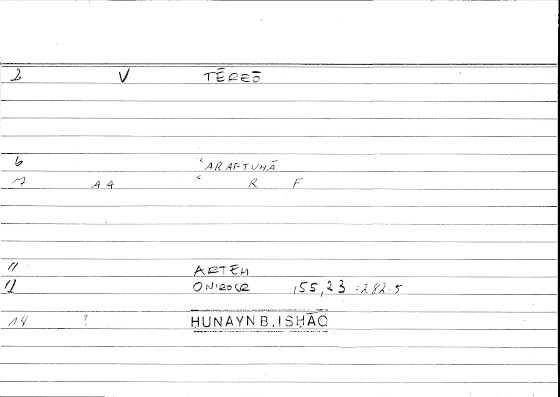 2 V TĒREŌ
6 ʿARAFTUHĀ
7 A4 ʿ R F
11 ARTEM
12 ONIROCR 155,23 = 282.5
14 ? HUNAYN B. ISḤĀQ